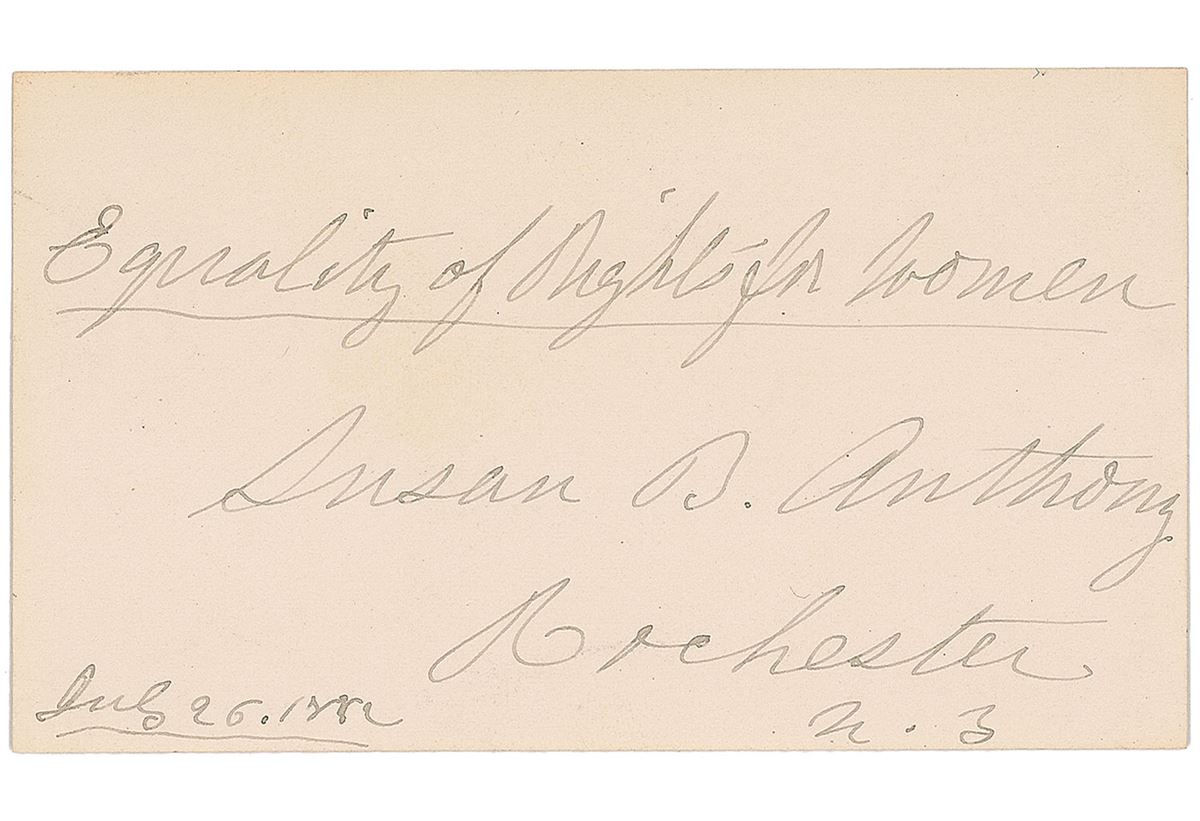 Equality of Rights for Women
Susan B. Anthony
Rochester
July 26. 1882
N. Y